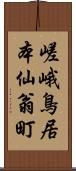 嵯峨鳥居
本仙翁町